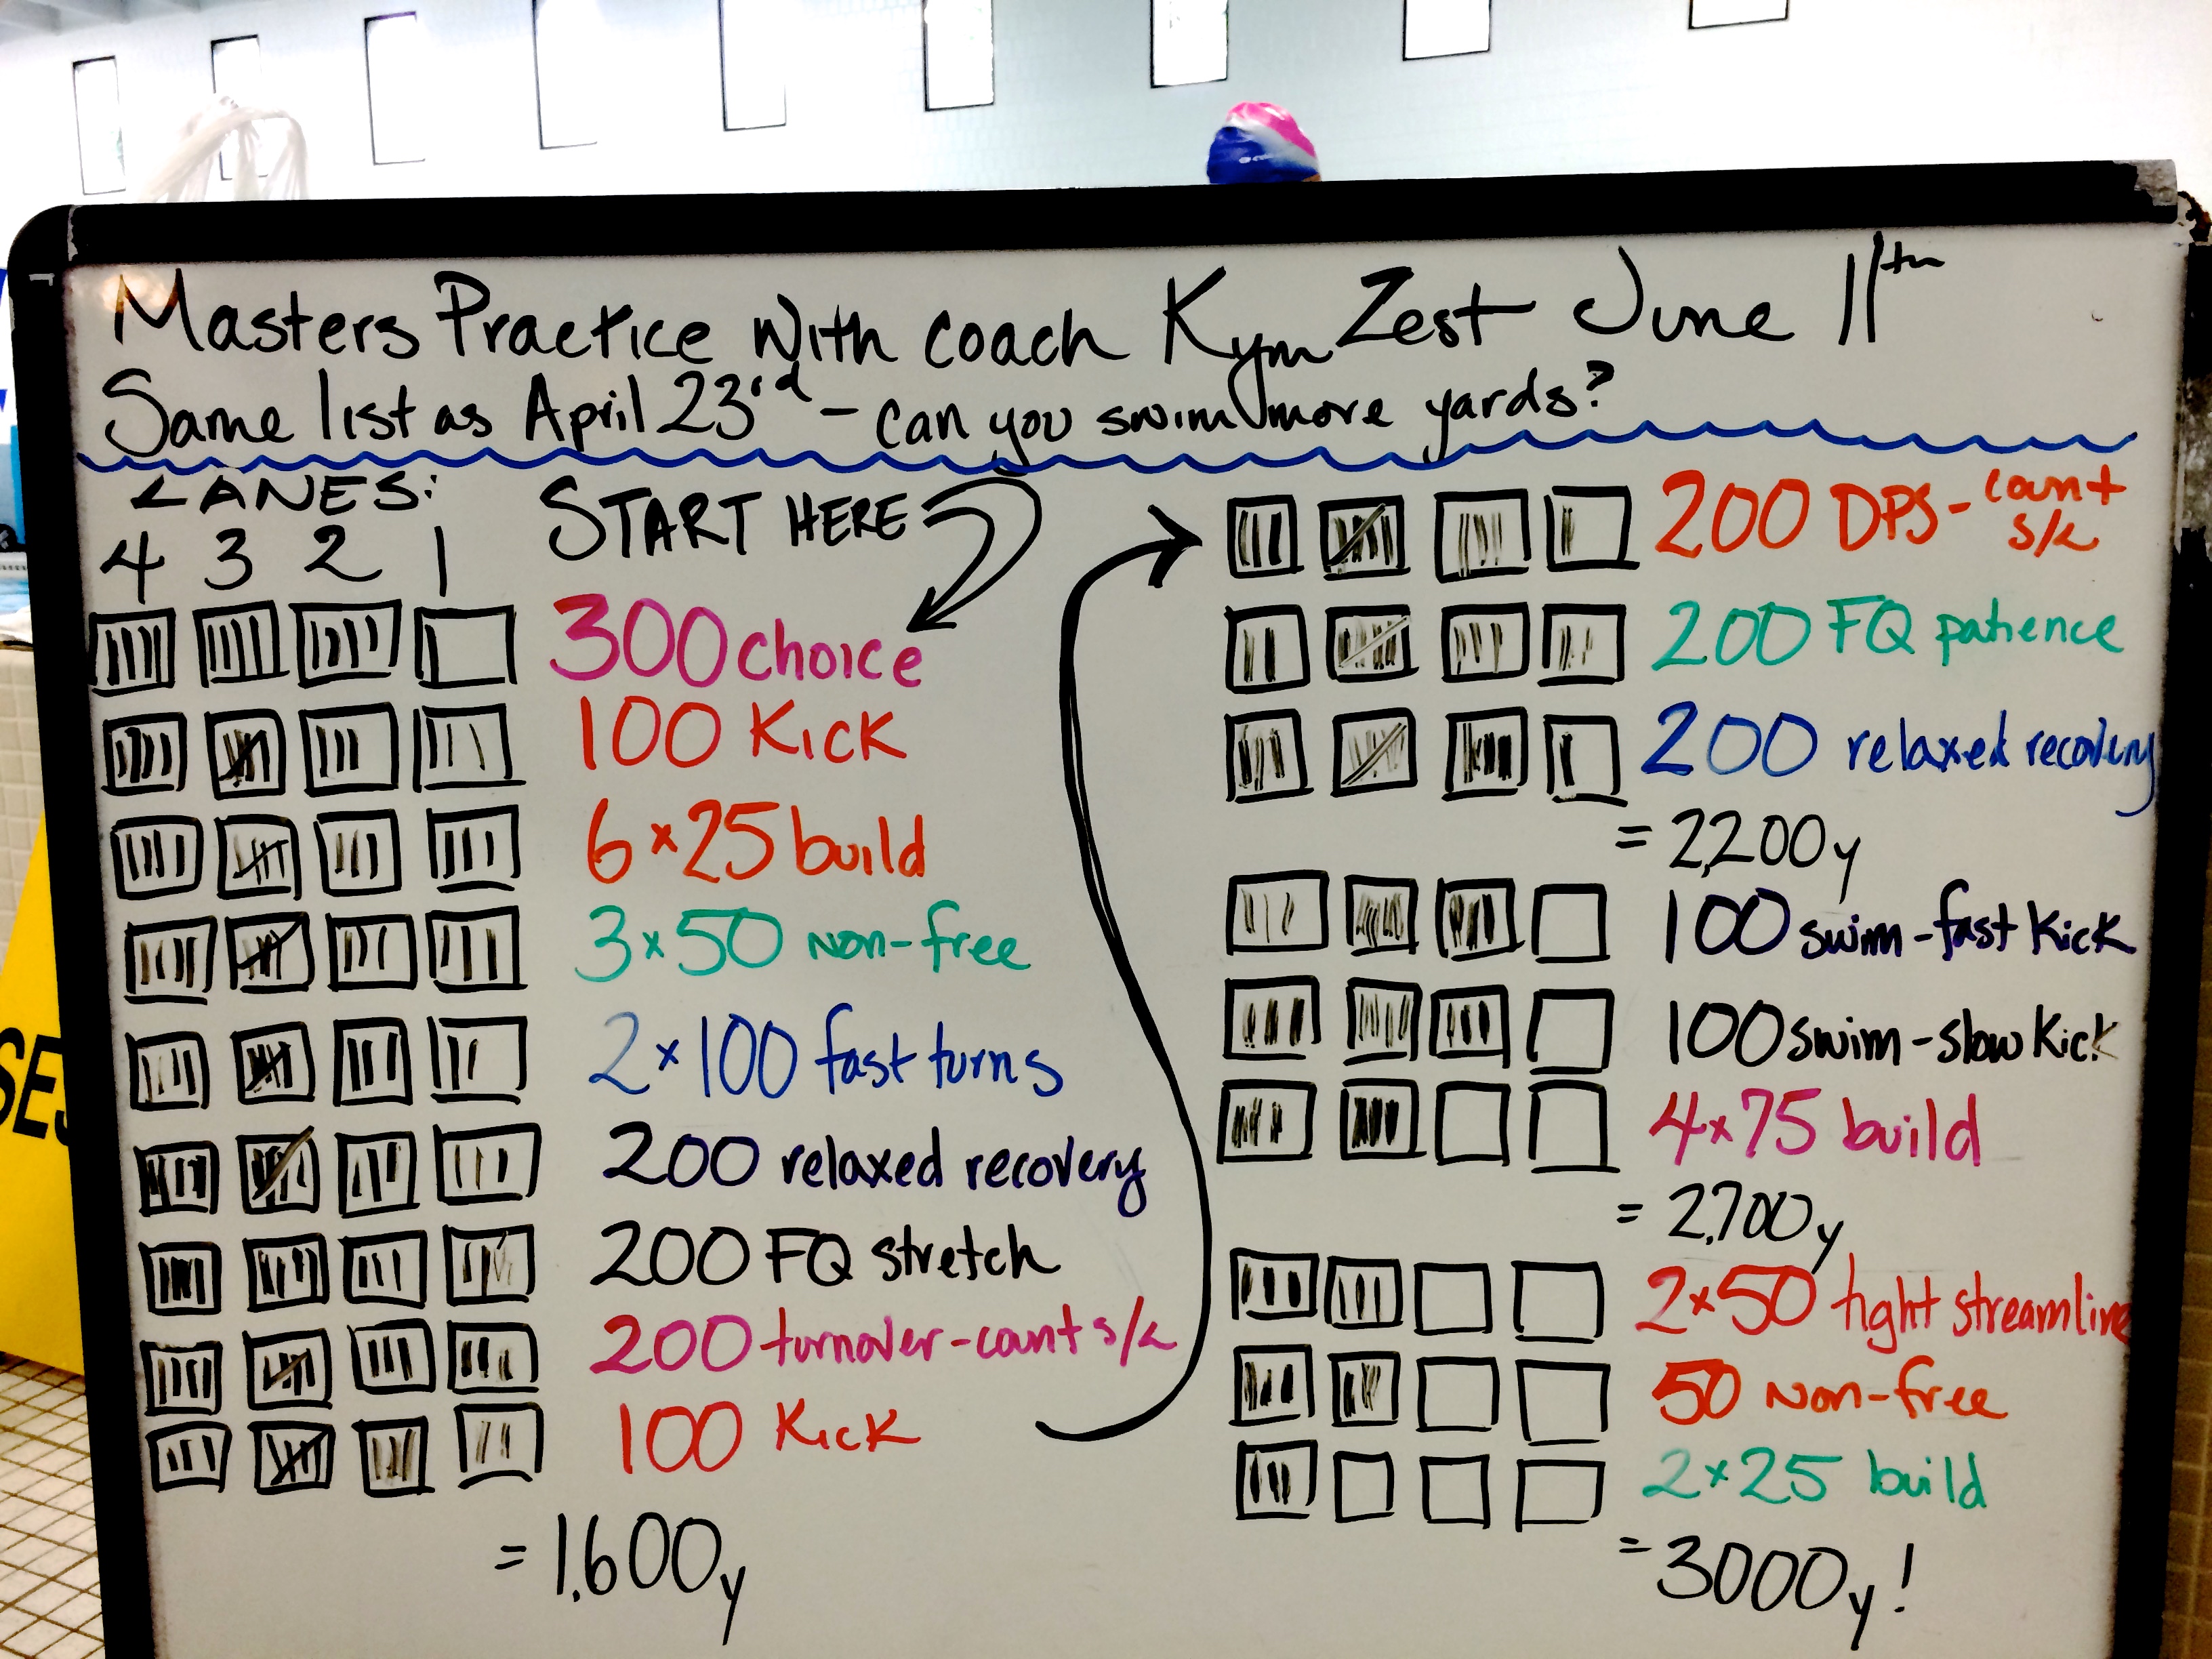 Masters Practice with coach Kym Zest June 11th
Same list as April 23rd - can you swim more yards?
LANES:
4 3 2 1
START HERE
300 choice
100 Kick
6 x 25 build
3 x 50 non-free
2 x 100 fast turns
200 relaxed recovery
200 FQ stretch
200 turnover-count s/L
100 Kick
= 1,600y
200 DPS-count s/L
200 FQ patience
200 relaxed recovery
= 2,200y
100 swim-fast Kick
100 swim-slow Kick
4 x 75 build
= 2,700y
2 x 50 tight streamline
50 non-free
2 x 25 build
= 3000y!